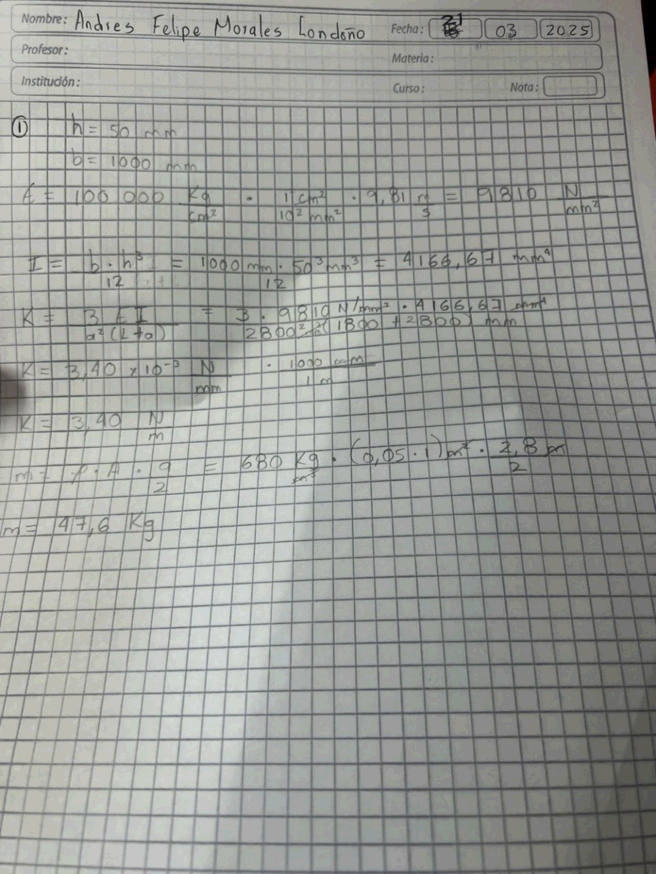 Nombre: Andres Felipe Morales Londoño Fecha: 21 03 2025
Profesor: Materia:
Institución: Curso: Nota:
① h = 50 mm
b = 1000 mm
E = 100 000 Kg/cm² · 1 cm²/10² mm² · 9,81 m/s = 9810 N/mm²
I = b·h³/12 = 1000 mm · 50³ mm³/12 = 4166,67 mm⁴
K = 3EI/a²(L+a) = 3 · 9810 N/mm² · 4166,67 mm⁴/2800² (1800 + 2800) mm
K = 3,40 x 10⁻³ N/mm · 1000 mm/1 m
K = 3,40 N/m
m = ρ·A·a/2 = 680 Kg/m³ · (0,05·1) m² · 2,8 m/2
m = 47,6 Kg